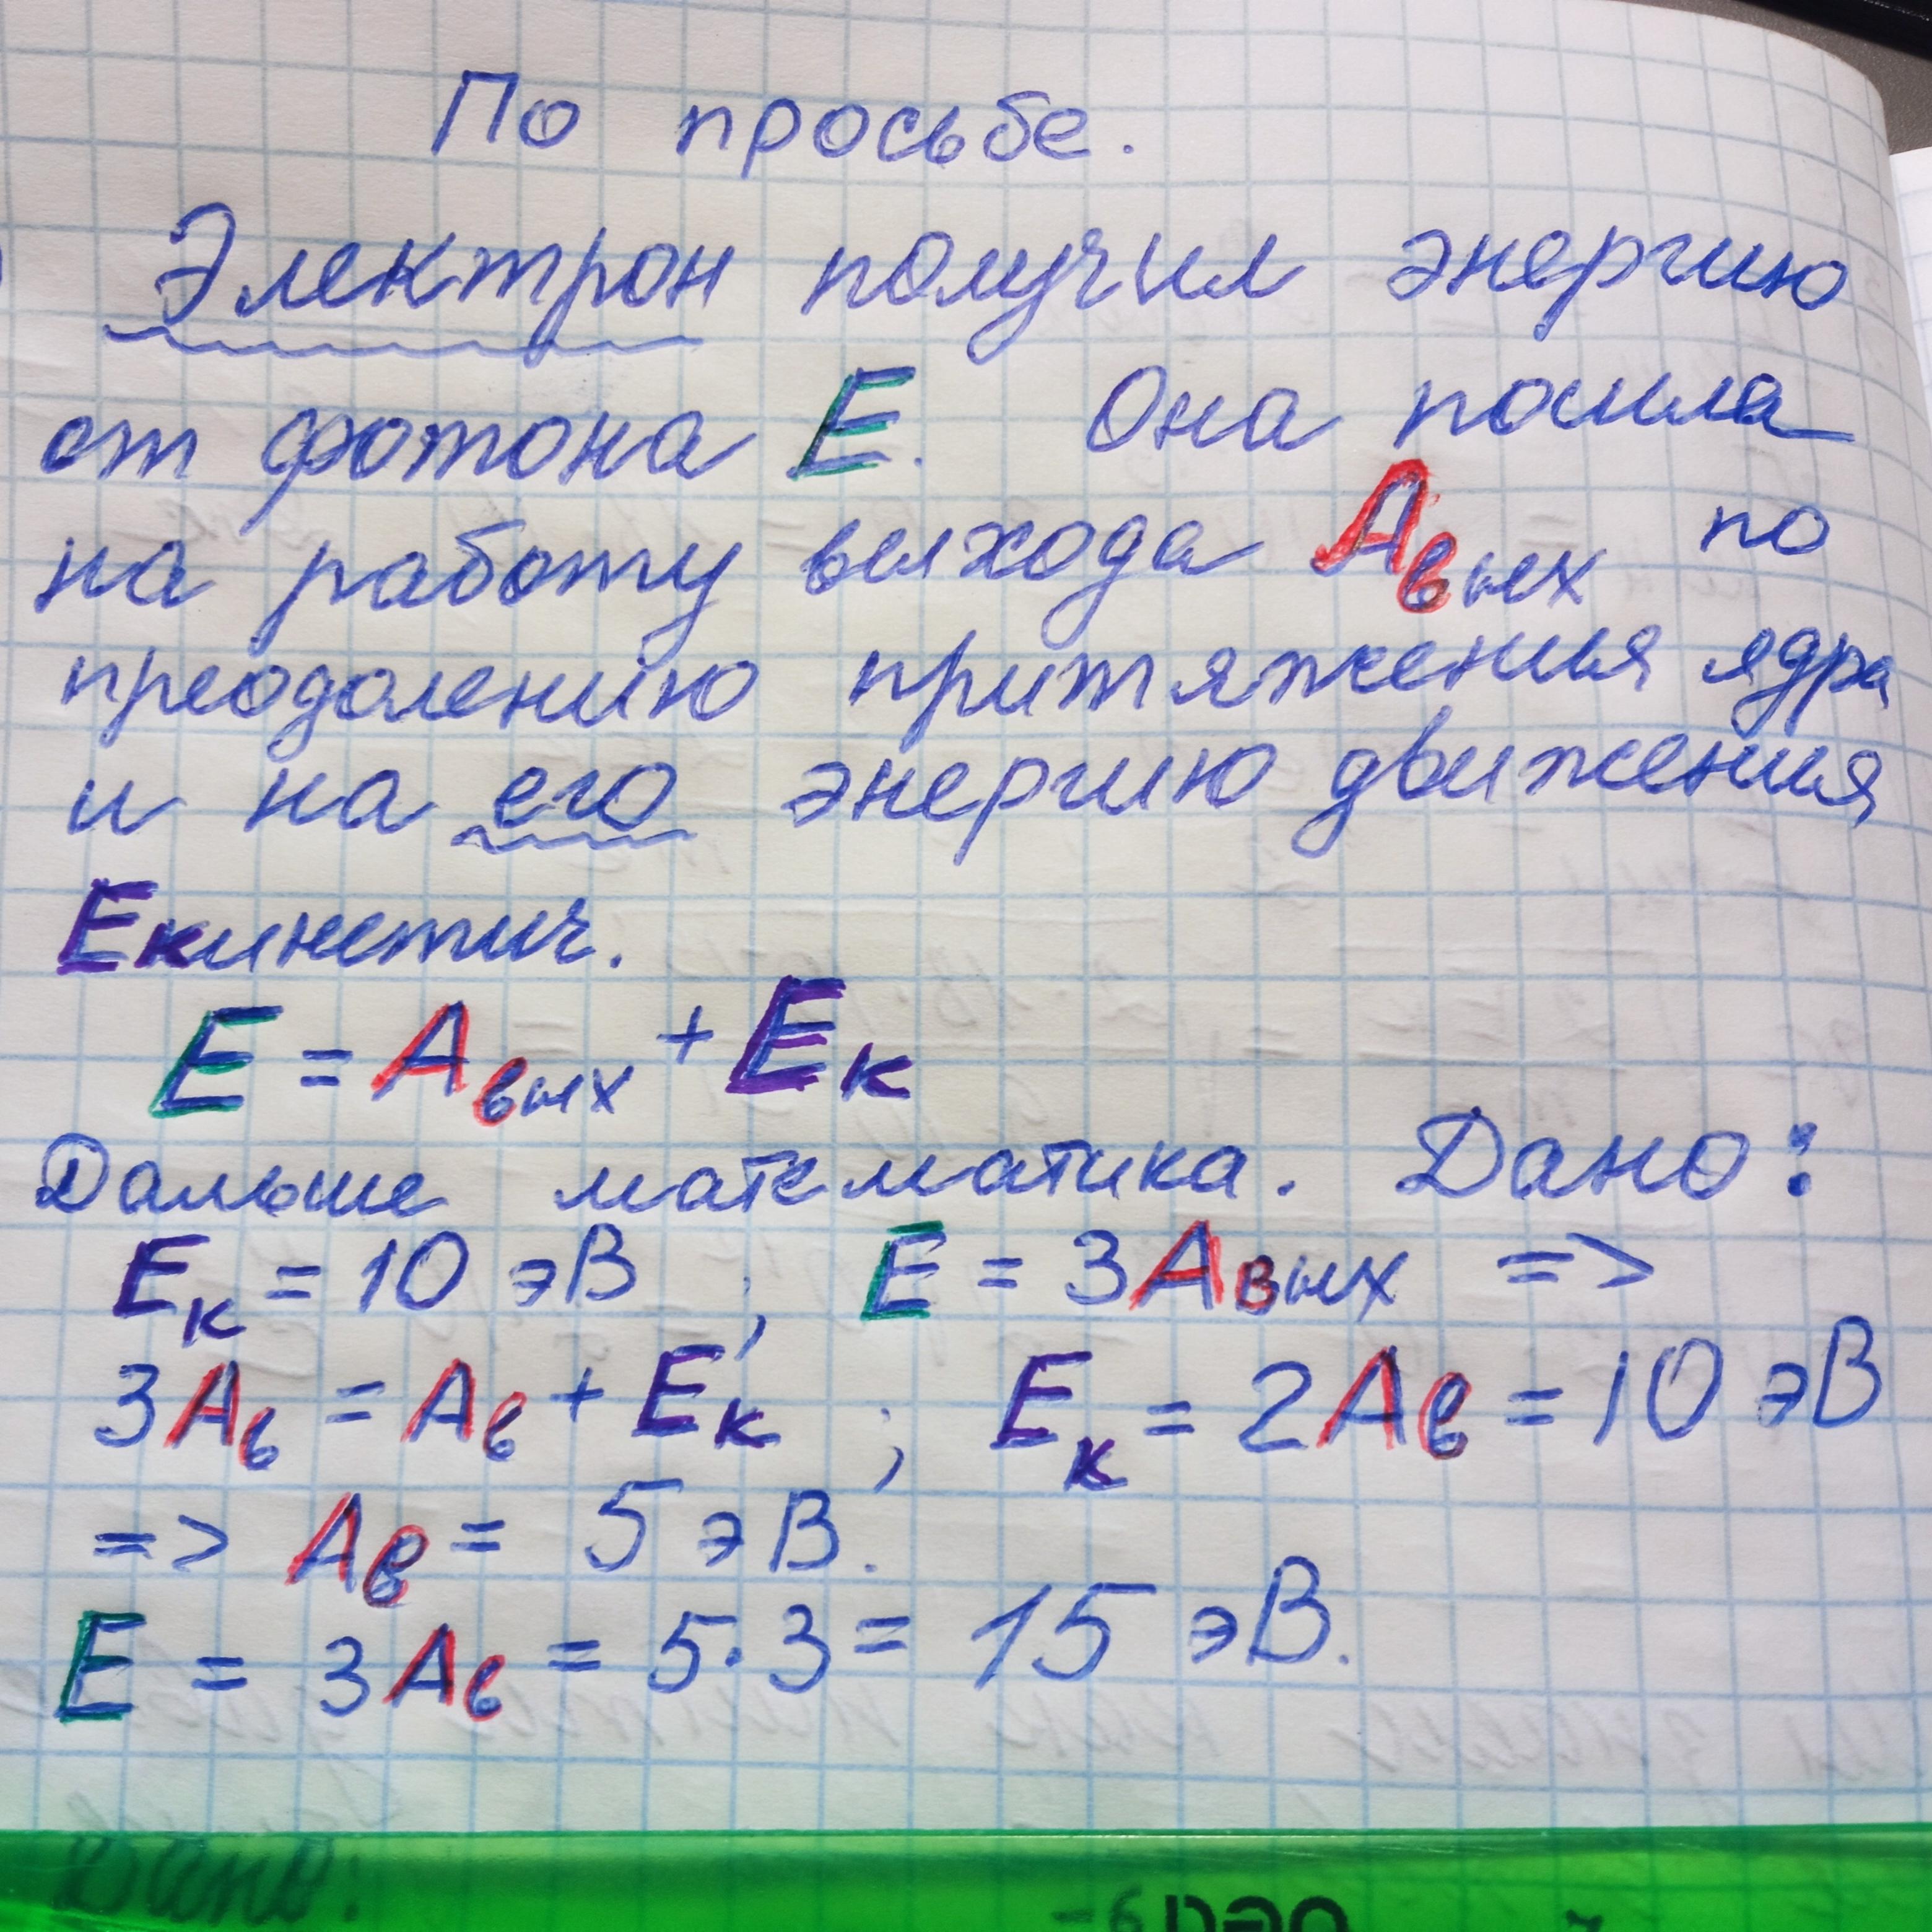 По просьбе.
Электрон получил энергию
от фотона E. Она пошла
на работу выхода Aвых по
преодолению притяжения ядра
и на его энергию движения
Eкинетич.
E = Aвых + Eк
Дальше математика. Дано:
Eк = 10 эВ ; E = 3Aвых =>
3Aв = Aв + Eк ; Eк = 2Aв = 10 эВ
=> Aв = 5 эВ.
E = 3Aв = 5·3 = 15 эВ.
Дано: